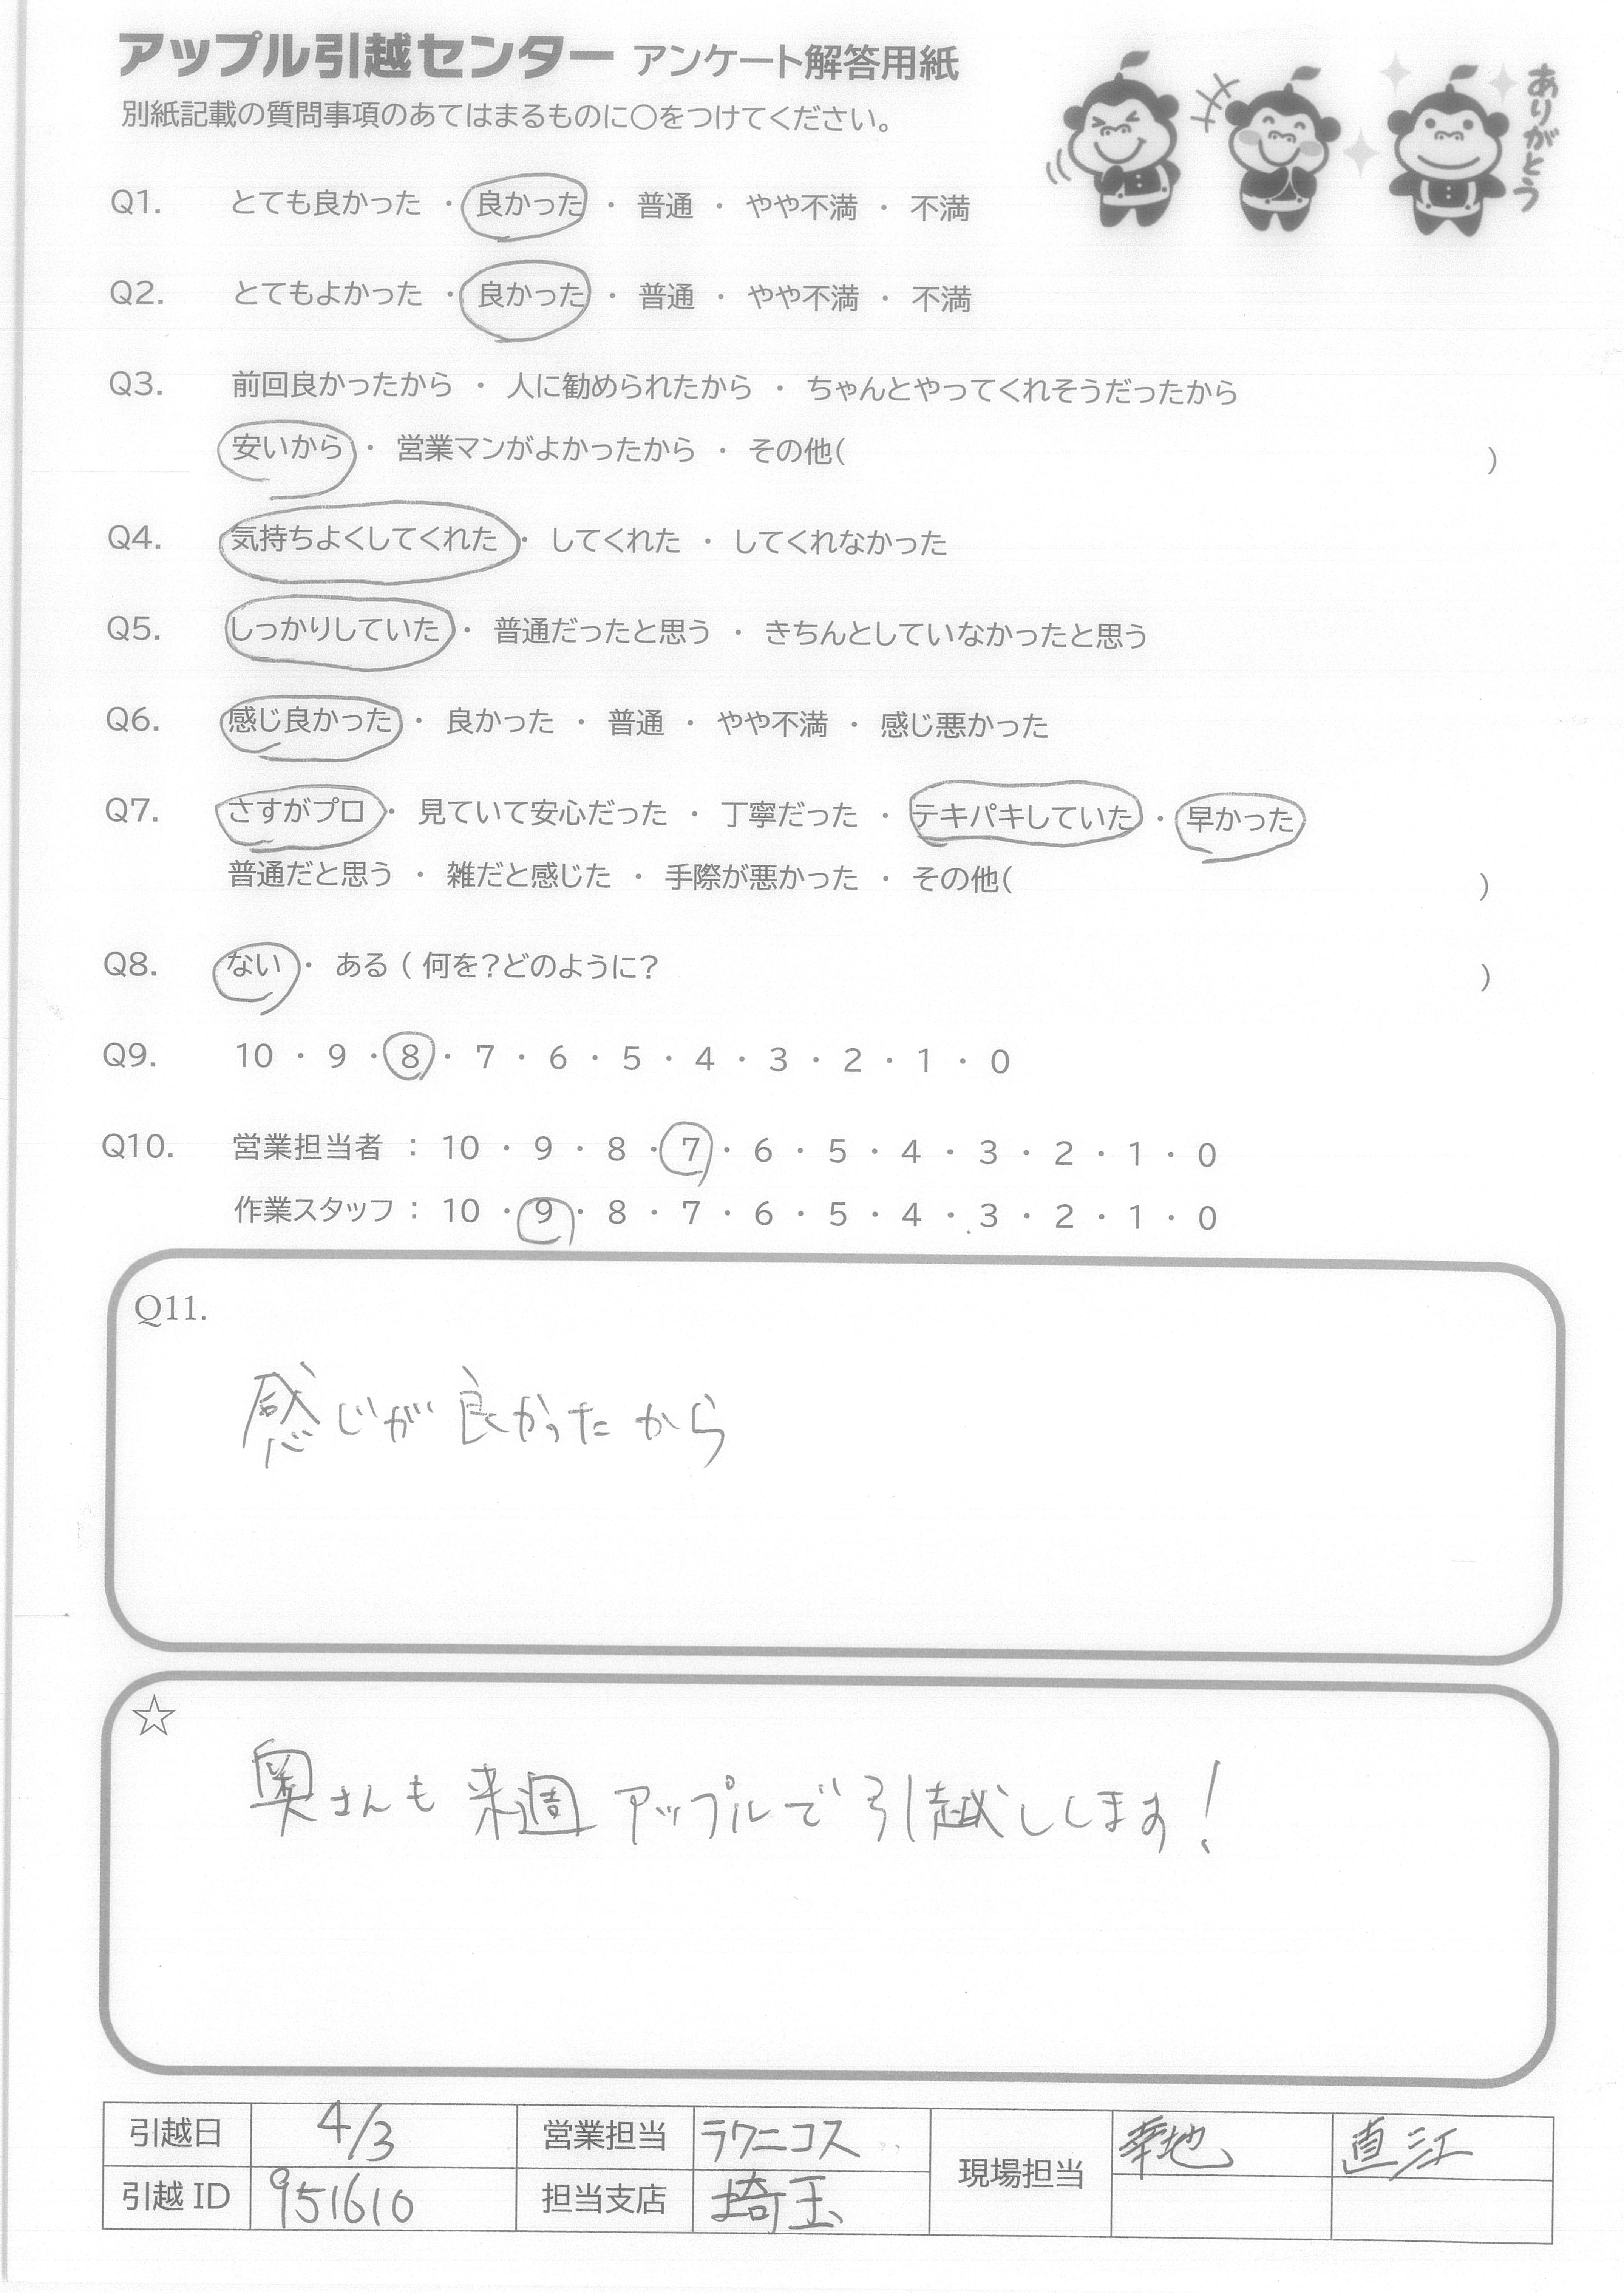 アップル引越センター アンケート解答用紙
ありがとう
別紙記載の質問事項のあてはまるものに〇をつけてください。
Q1. とても良かった ・ 良かった ・ 普通 ・ やや不満 ・ 不満
Q2. とてもよかった ・ 良かった ・ 普通 ・ やや不満 ・ 不満
Q3. 前回良かったから ・ 人に勧められたから ・ ちゃんとやってくれそうだったから
安いから ・ 営業マンがよかったから ・ その他( )
Q4. 気持ちよくしてくれた ・ してくれた ・ してくれなかった
Q5. しっかりしていた ・ 普通だったと思う ・ きちんとしていなかったと思う
Q6. 感じ良かった ・ 良かった ・ 普通 ・ やや不満 ・ 感じ悪かった
Q7. さすがプロ ・ 見ていて安心だった ・ 丁寧だった ・ テキパキしていた ・ 早かった
普通だと思う ・ 雑だと感じた ・ 手際が悪かった ・ その他( )
Q8. ない ・ ある ( 何を?どのように? )
Q9. 10 ・ 9 ・ 8 ・ 7 ・ 6 ・ 5 ・ 4 ・ 3 ・ 2 ・ 1 ・ 0
Q10. 営業担当者 : 10 ・ 9 ・ 8 ・ 7 ・ 6 ・ 5 ・ 4 ・ 3 ・ 2 ・ 1 ・ 0
作業スタッフ : 10 ・ 9 ・ 8 ・ 7 ・ 6 ・ 5 ・ 4 ・ 3 ・ 2 ・ 1 ・ 0
Q11.
感じが良かったから
☆
奥さんも来週アップルで引越しします!
引越日 4/3 営業担当 ラクニコス 現場担当 幸地 直江
引越 ID 951610 担当支店 埼玉